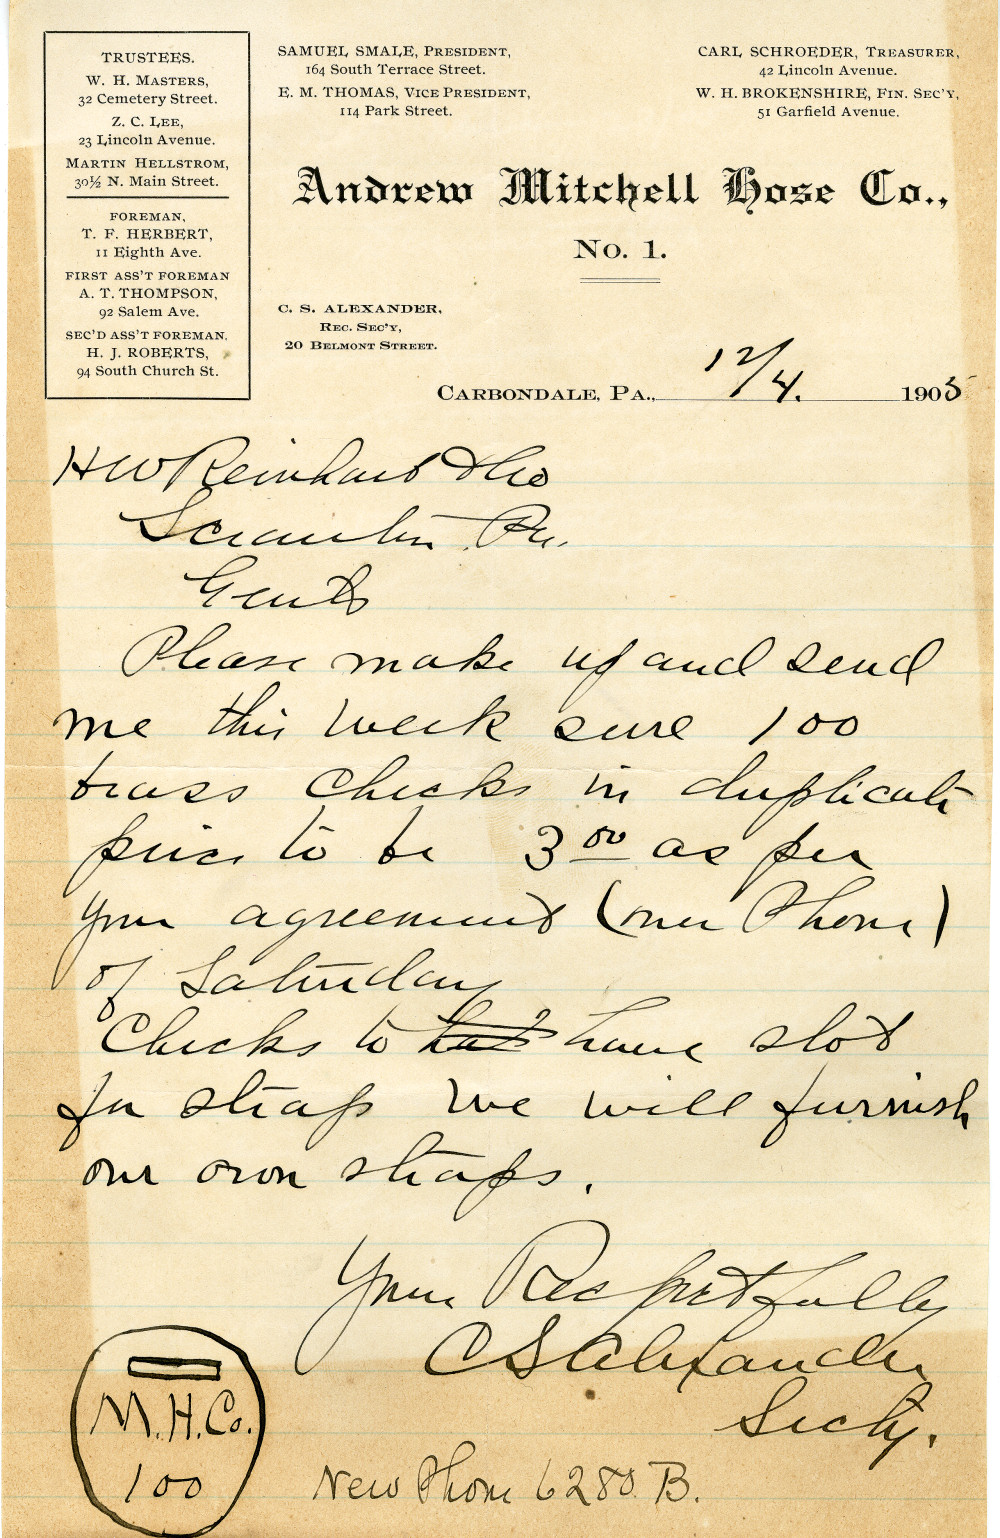 TRUSTEES.
W. H. MASTERS,
32 Cemetery Street.
Z. C. LEE,
23 Lincoln Avenue.
MARTIN HELLSTROM,
30½ N. Main Street.
FOREMAN,
T. F. HERBERT,
11 Eighth Ave.
FIRST ASS'T FOREMAN
A. T. THOMPSON,
92 Salem Ave.
SEC'D ASS'T FOREMAN,
H. J. ROBERTS,
94 South Church St.
SAMUEL SMALE, PRESIDENT,
164 South Terrace Street.
E. M. THOMAS, VICE PRESIDENT,
114 Park Street.
CARL SCHROEDER, TREASURER,
42 Lincoln Avenue.
W. H. BROKENSHIRE, FIN. SEC'Y,
51 Garfield Avenue.
Andrew Mitchell Hose Co.,
No. 1.
C. S. ALEXANDER,
REC. SEC'Y,
20 BELMONT STREET.
CARBONDALE, PA., 12/4. 1905
H W Reinhart & Co
Scranton, Pa.
Gents
Please make up and send
me this week sure 100
brass checks in duplicate
price to be 3 00 as per
your agreement (over Phone)
of Saturday
Checks to have slot
for strap we will furnish
our own straps.
Yours Respectfully
C S Alexander
Secty.
M.H.Co.
100
New Phone 6280 B.